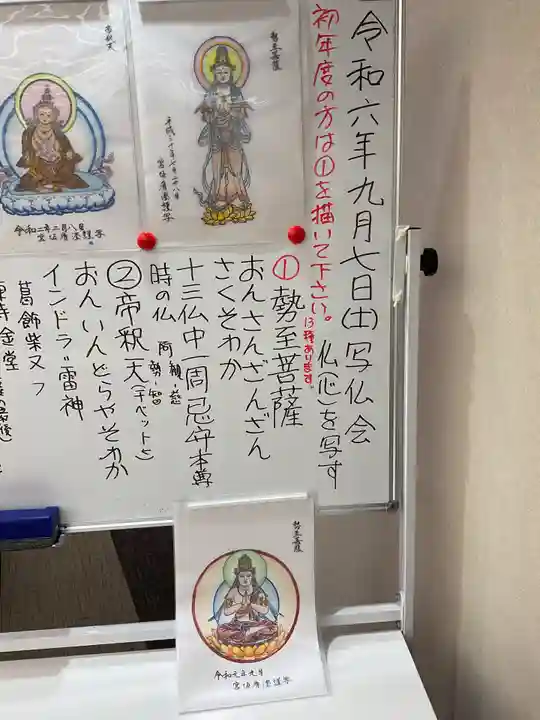 令和六年九月七日(土)写仏会
仏(心)を写す
初年度の方は①を描いて下さい。
13種あります。
①勢至菩薩
おんさんざんざん
さくそわか
十三仏中一周忌守本尊
時の仏
②帝釈天(チベットと
おんいんどらやそわか
インドラ=雷神
葛飾柴又
帝釈天
令和二年二月八日
勢至菩薩
勢至菩薩
令和元年九月